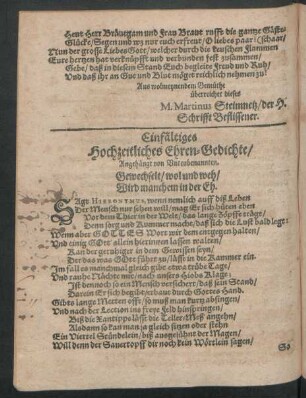 Heut Herr Bräutgam und Frau Braut rufft die gantze Gäste-
Glücke/ Segen und wz nur euch erfreut/ O liebes paar: (schaar/
Nun der grosse Liebes Gott/ welcher durch die keuschen Flammen
Eure hertzen hat verknüpfft und verbunden fest zusammen/
Gebe/ daß in diesem Stand Euch begleite Freud und Ruh/
Und daß ihr an Gut und Blut möget reichlich nehmen zu!
Aus wolmeynendem Gemüthe
überreichet dieses
M. Martinus Steinmetz/ der H.
Schrifft Beflissener.
Einfältiges
Hochzeitliches Ehren-Gedichte/
Angehängt von Untenbenanten.
Gewechselt/ wol und weh/
Wird manchem in der Eh.
SAgt HIERONYMUS, wenn nemlich auff diß Leben
Der Mensch nur sehen will/ mag Er sich hüten eben
Vor dem Thier in der Welt/ das lange Zöpffe trägt/
Denn sorg und Kummer macht/ daß sich die Lust bald legt:
Wenn aber GOTTES Wort wir dem entgegen halten/
Und einig GOtt allein hierinnen lassen walten/
Kan der geruhiger in dem Gewissen seyn/
Der das was GOtt führt zu/ läst in die Kammer ein.
Im fall es mannichmal gleich gibe etwa trübe Tage/
Und rauhe Nächte mit/ nach unsers Hiobs Klage:
Ist dennoch so ein Mensch versichert/ daß sein Stand/
Darein Er sich begibt/ erbaut durch Gottes Hand.
Gibts lange Metten offt/ so muß man kurtz absingen/
Und nach der Lection ins freye Feld hinspringen/
Biß die Xantipps läst die Teller-Meß angehn/
Alsdann so kan man ja gleich sitzen oder stehn
Ein Viertel Stündelein/ biß ausgesühnt der Magen/
Will denn der Sauertopff dir noch kein Wörtlein sagen/
So